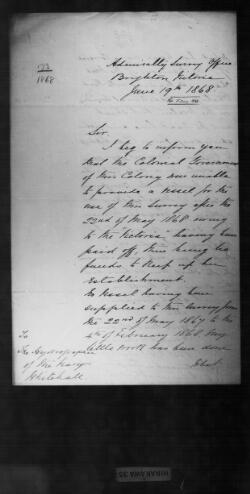 73
1868
Admiralty Survey Office
Brighton, Victoria
June 19th 1868
Sir
I beg to inform you
that the Colonial Government
of this Colony was unable
to provide a vessel for the
use of this Survey after the
22nd of May 1868 owing
to the "Victoria" having been
paid off, there being no
funds to keep up her
establishment.
No Vessel having been
supplied to this Survey from
the 22nd of May 1867 to the
4th of February 1868 very
little work has been done
To
The Hydrographer
of the Navy
Whitehall
MIRAKAWA 35